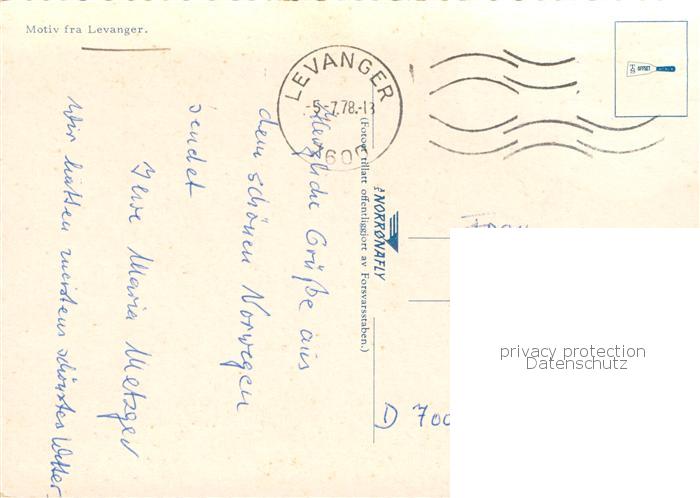 Motiv fra Levanger.
LEVANGER
-5.-7.78.-13
7600
Herzliche Grüße aus
dem schönen Norwegen
sendet
Ihre Maria Metzger
Wir hatten meistens schönstes Wetter.
(Fotoet tillatt offentliggjort av Forsvarsstaben.)
A/S NORRØNAFLY
OFFSET
D 700
privacy protection
Datenschutz